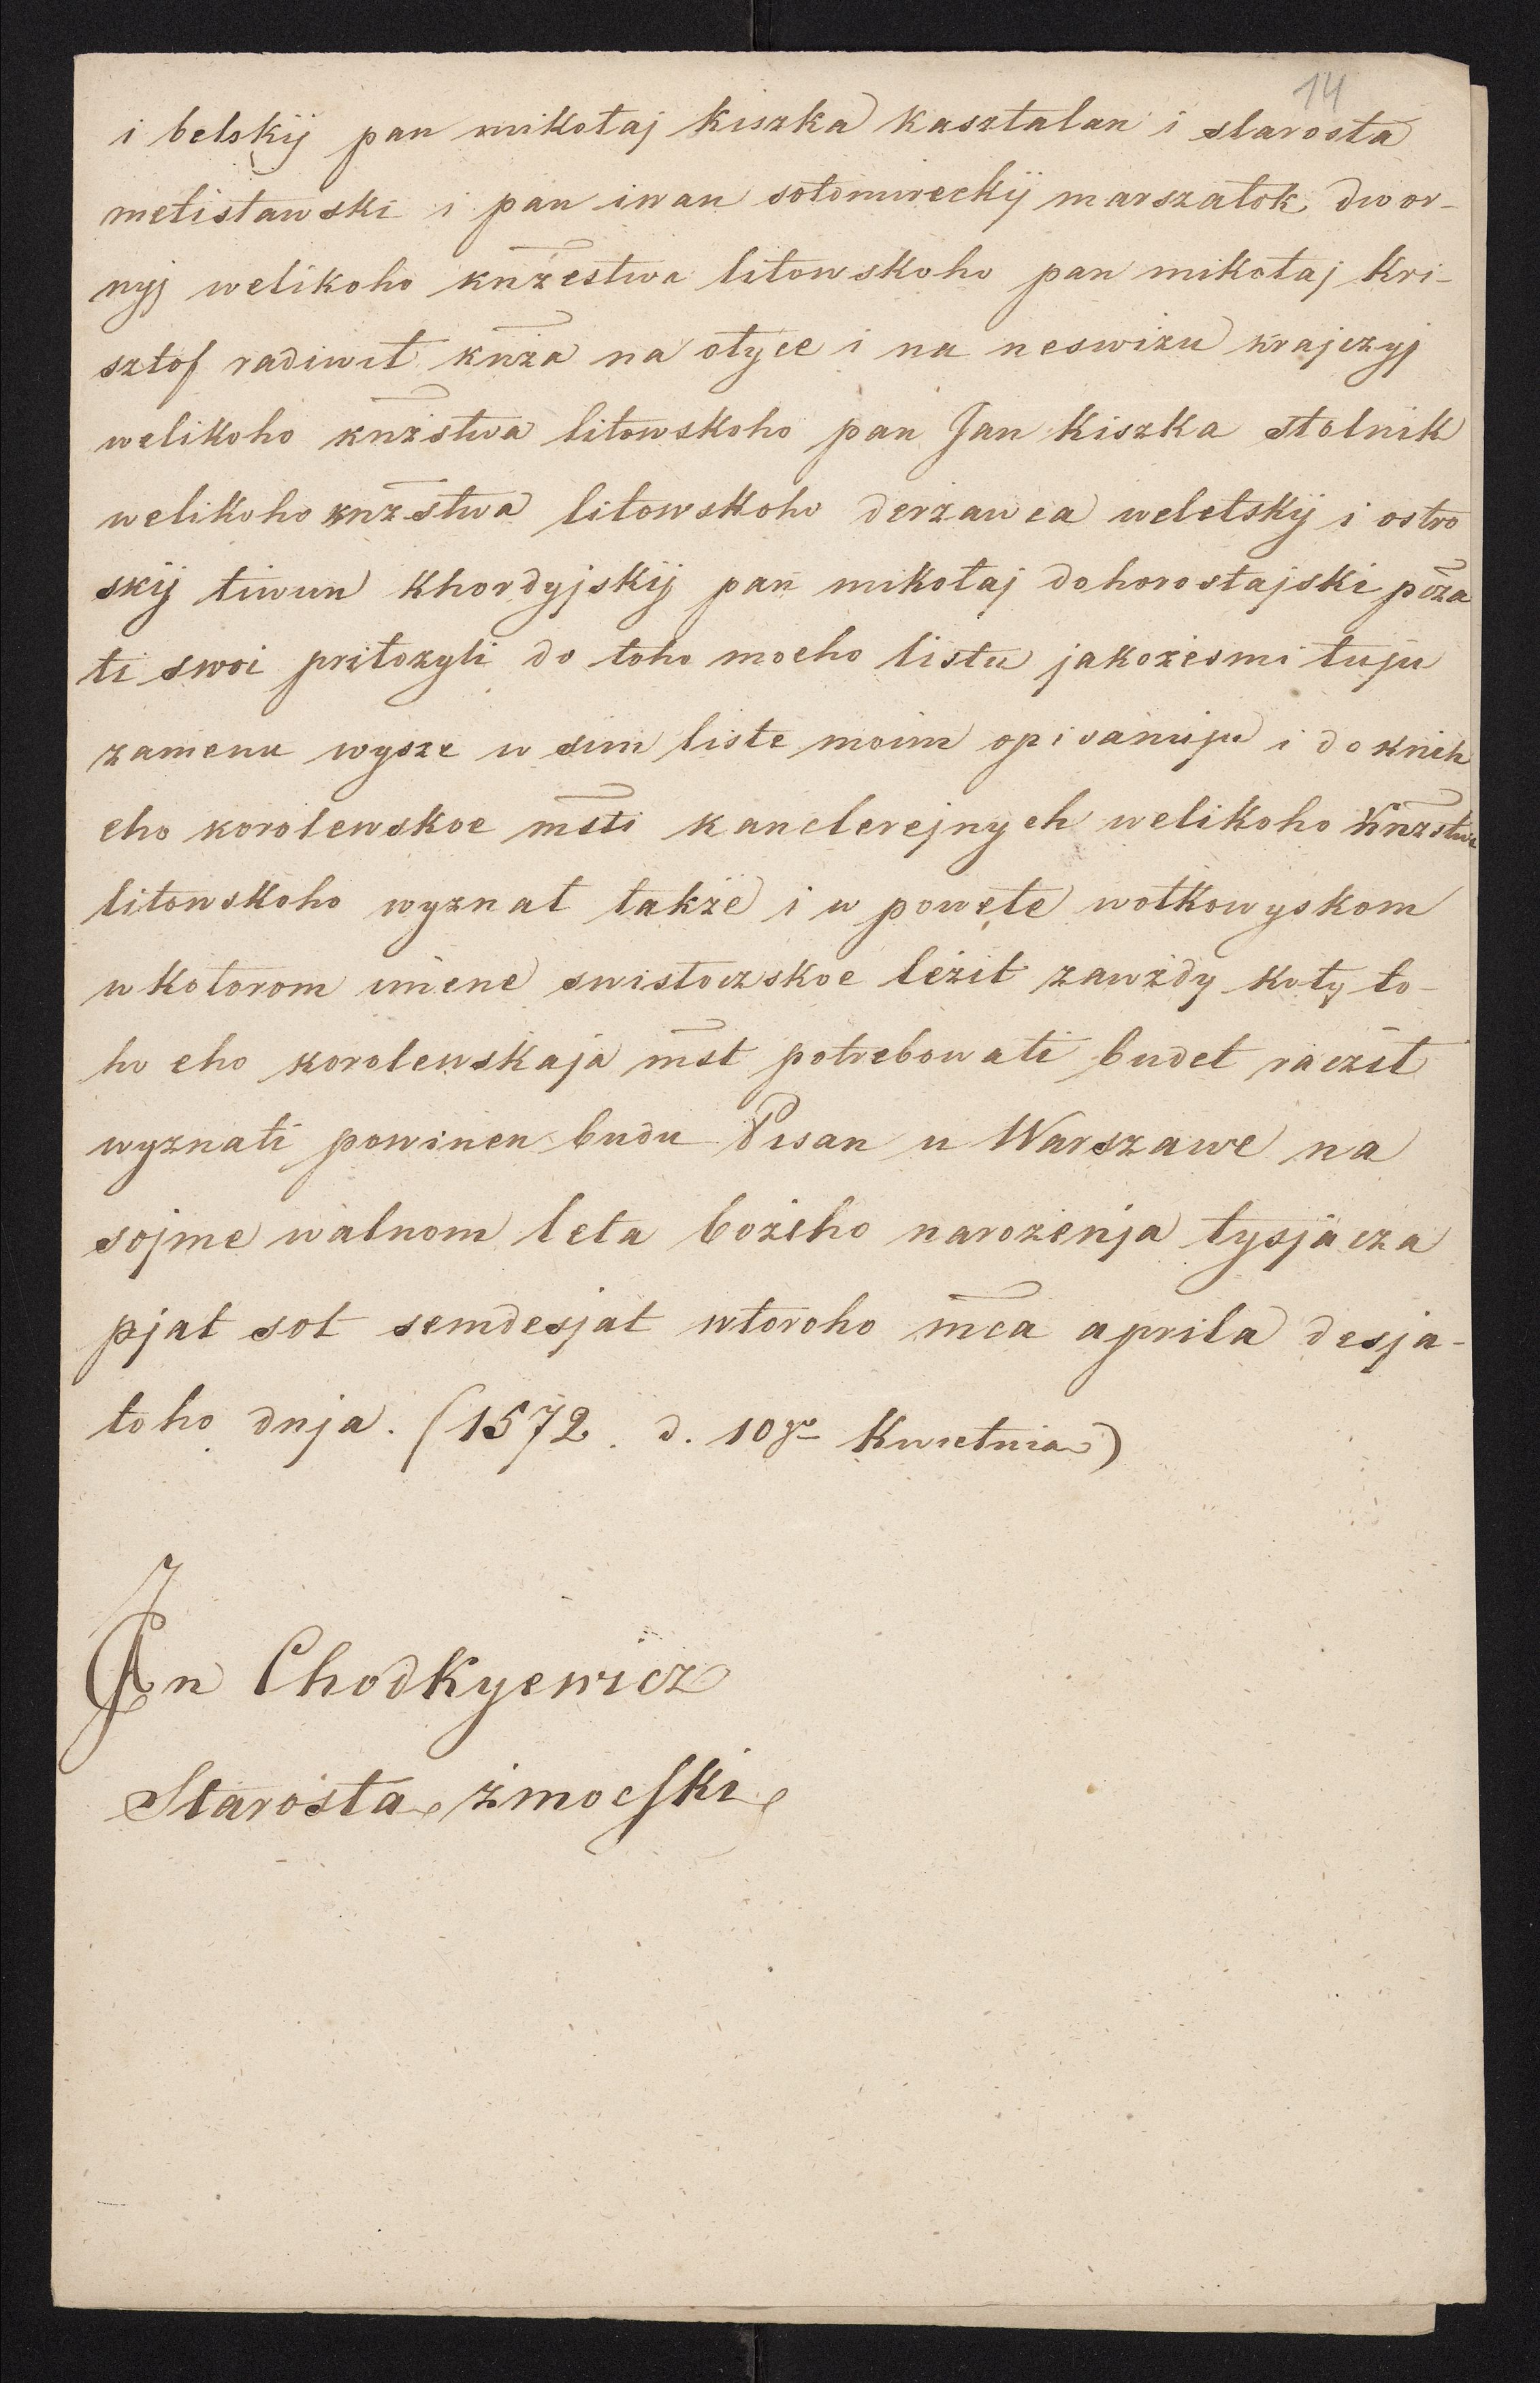 14
i belskij pan mikołaj kiszka kasztalan i starosta
metisławski i pan iwan sołomireckij marszałok dwor-
nyj welikoho knżestwa litowskoho pan mikołaj kri-
sztof radiwił knża na ołyce i na neswiżu krajczyj
welikoho knżstwa litowskoho pan Jan Kiszka stolnik
welikoho knżstwa litowskoho derżawca weletskij i ostro
skij tiwun Khordyjskij pan mikołaj dohorostajski pcza
ti swoi pritożyli do toho moeho listu jakożesmi tuju
zamenu wysze w sim liste moim opisanuju i do knih
eho korolewskoe msti kanclerejnych welikoho knżstwa
litowskoho wyznał także i w powete wołkowyskom
w kotorom imene swistoczskoe leżit zawżdy koły to-
ho eho korolewskaja mst potrebowati budet raczit
wyznati powinen budu Pisan u Warszawe na
sojme walnom leta bożeho narożenja tysjacza
pjat sot semdesjat wtoroho mca aprila desja-
toho dnja. (1572. d. 10go Kwietnia)
Jan Chodkyewicz
Starosta żmocski